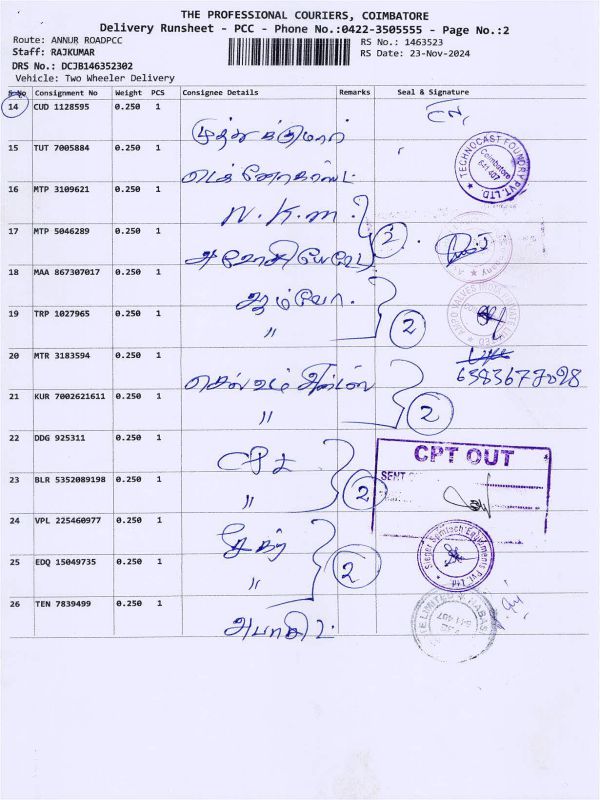 THE PROFESSIONAL COURIERS, COIMBATORE
Delivery Runsheet - PCC - Phone No.:0422-3505555 - Page No.:2
Route: ANNUR ROADPCC RS No.: 1463523
Staff: RAJKUMAR RS Date: 23-Nov-2024
DRS No.: DCJB146352302
Vehicle: Two Wheeler Delivery
S No Consignment No Weight PCS Consignee Details Remarks Seal & Signature
14 CUD 1128595 0.250 1
முத்துக்குமார்
15 TUT 7005884 0.250 1
TECHNOCAST FOUNDRY PVT. LTD. Coimbatore 641 407
16 MTP 3109621 0.250 1
N.K.M.
17 MTP 5046289 0.250 1
2
18 MAA 867307017 0.250 1
19 TRP 1027965 0.250 1
" 2
20 MTR 3183594 0.250 1
6383677028
21 KUR 7002621611 0.250 1
" 2
22 DDG 925311 0.250 1
CPT OUT
SENT
23 BLR 5352089198 0.250 1
" 2
24 VPL 225460977 0.250 1
25 EDQ 15049735 0.250 1
" 2
26 TEN 7839499 0.250 1
641 407